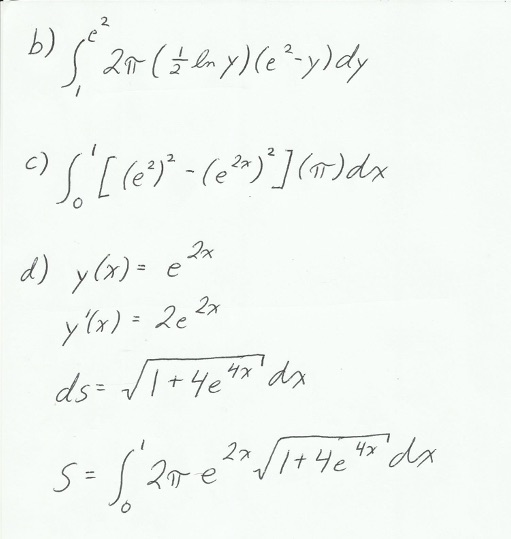 b) ∫₁^{e²} 2π(½ ln y)(e²-y)dy
c) ∫₀¹ [(e²)² - (e^{2x})²](π)dx
d) y(x) = e^{2x}
y'(x) = 2e^{2x}
ds = √(1+4e^{4x}) dx
S = ∫₀¹ 2π e^{2x} √(1+4e^{4x}) dx